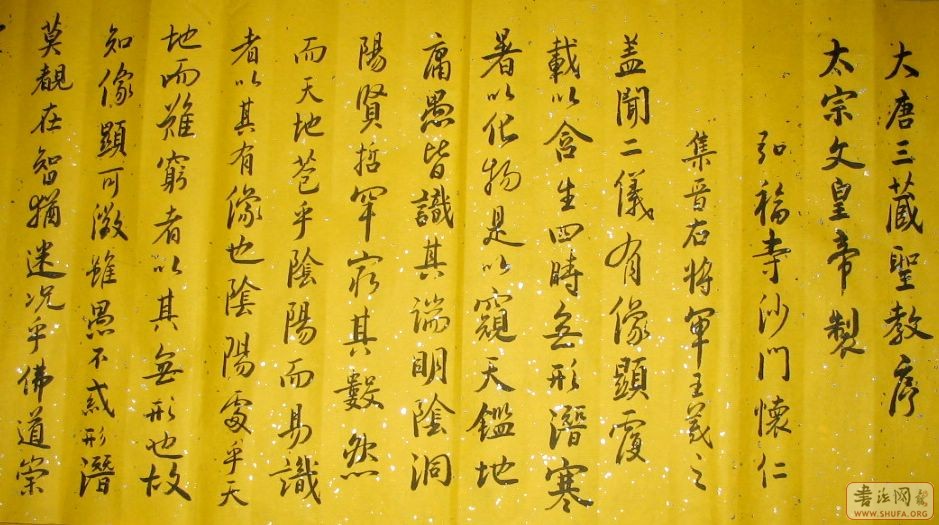 大唐三藏聖教序
太宗文皇帝製
弘福寺沙門懷仁
集晉右將軍王羲之
盖聞二儀有像顯覆
載以含生四時無形潛寒
暑以化物是以窺天鑑地
庸愚皆識其端明陰洞
陽賢哲罕窮其數然
而天地苞乎陰陽而易識
者以其有像也陰陽處乎天
地而難窮者以其無形也故
知像顯可徵雖愚不惑形潛
莫覩在智猶迷况乎佛道崇
书法网
WWW.SHUFA.ORG